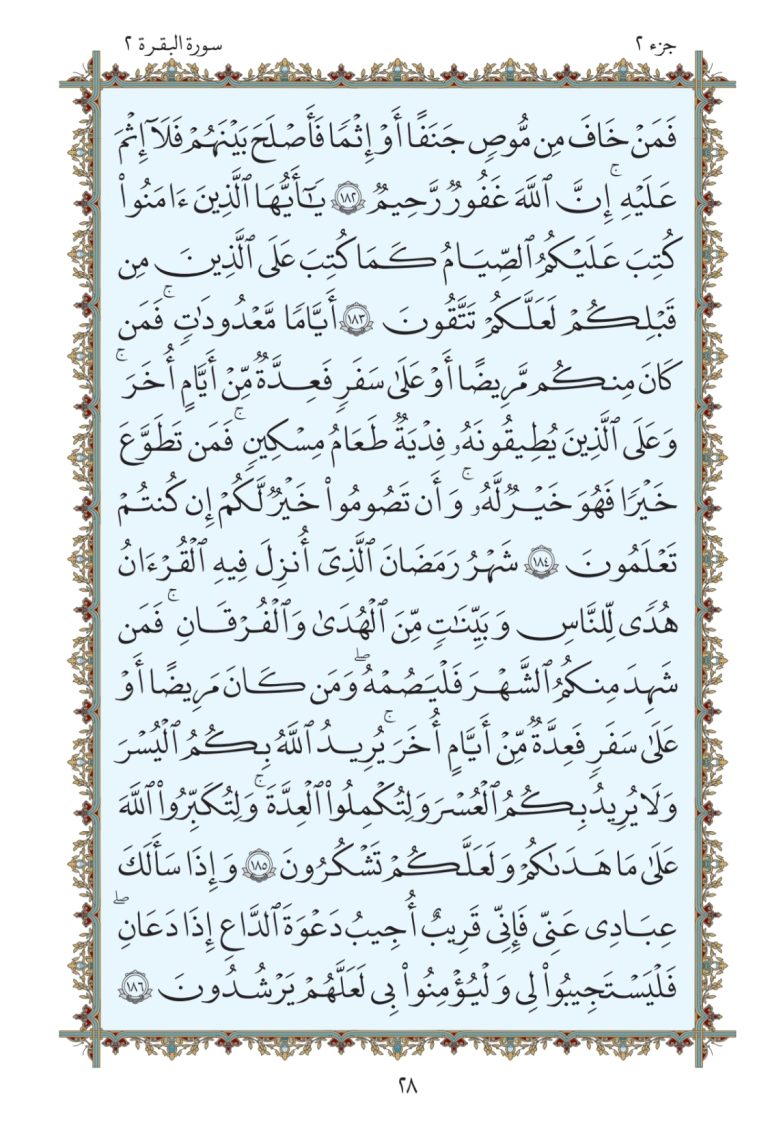 جزء ٢
سورة البقرة ٢
فَمَنْ خَافَ مِن مُّوصٍ جَنَفًا أَوْ إِثْمًا فَأَصْلَحَ بَيْنَهُمْ فَلَآ إِثْمَ
عَلَيْهِ ۚ إِنَّ ٱللَّهَ غَفُورٌ رَّحِيمٌ ١٨٢ يَـٰٓأَيُّهَا ٱلَّذِينَ ءَامَنُوا۟
كُتِبَ عَلَيْكُمُ ٱلصِّيَامُ كَمَا كُتِبَ عَلَى ٱلَّذِينَ مِن
قَبْلِكُمْ لَعَلَّكُمْ تَتَّقُونَ ١٨٣ أَيَّامًا مَّعْدُودَٰتٍ ۚ فَمَن
كَانَ مِنكُم مَّرِيضًا أَوْ عَلَىٰ سَفَرٍ فَعِدَّةٌ مِّنْ أَيَّامٍ أُخَرَ ۚ
وَعَلَى ٱلَّذِينَ يُطِيقُونَهُۥ فِدْيَةٌ طَعَامُ مِسْكِينٍ ۚ فَمَن تَطَوَّعَ
خَيْرًا فَهُوَ خَيْرٌ لَّهُۥ ۚ وَأَن تَصُومُوا۟ خَيْرٌ لَّكُمْ إِن كُنتُمْ
تَعْلَمُونَ ١٨٤ شَهْرُ رَمَضَانَ ٱلَّذِىٓ أُنزِلَ فِيهِ ٱلْقُرْءَانُ
هُدًى لِّلنَّاسِ وَبَيِّنَـٰتٍ مِّنَ ٱلْهُدَىٰ وَٱلْفُرْقَانِ ۚ فَمَن
شَهِدَ مِنكُمُ ٱلشَّهْرَ فَلْيَصُمْهُ ۖ وَمَن كَانَ مَرِيضًا أَوْ
عَلَىٰ سَفَرٍ فَعِدَّةٌ مِّنْ أَيَّامٍ أُخَرَ ۗ يُرِيدُ ٱللَّهُ بِكُمُ ٱلْيُسْرَ
وَلَا يُرِيدُ بِكُمُ ٱلْعُسْرَ وَلِتُكْمِلُوا۟ ٱلْعِدَّةَ ۚ وَلِتُكَبِّرُوا۟ ٱللَّهَ
عَلَىٰ مَا هَدَىٰكُمْ وَلَعَلَّكُمْ تَشْكُرُونَ ١٨٥ وَإِذَا سَأَلَكَ
عِبَادِى عَنِّى فَإِنِّى قَرِيبٌ أُجِيبُ دَعْوَةَ ٱلدَّاعِ إِذَا دَعَانِ ۖ
فَلْيَسْتَجِيبُوا۟ لِى وَلْيُؤْمِنُوا۟ بِى لَعَلَّهُمْ يَرْشُدُونَ ١٨٦
٢٨